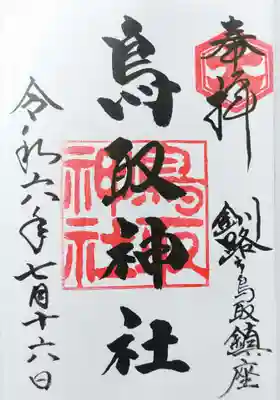 奉拝
釧路ヶ鳥取鎮座
鳥取神社
鳥取神社
令和六年七月十六日